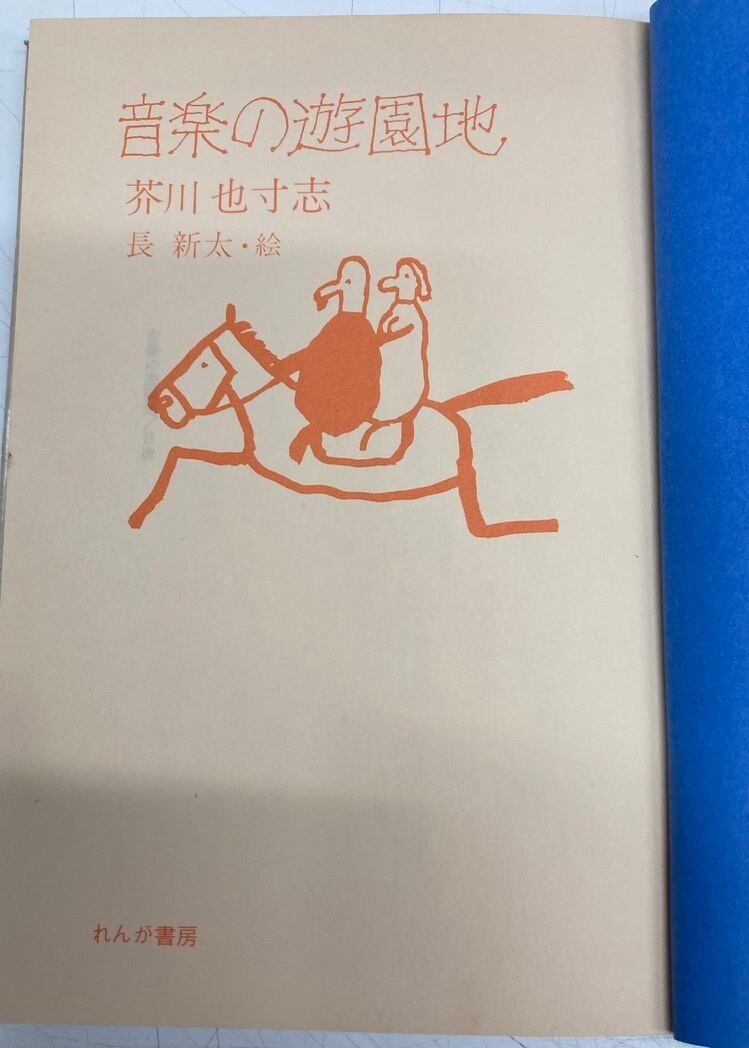 音楽の遊園地
芥川也寸志
長 新太・絵
れんが書房